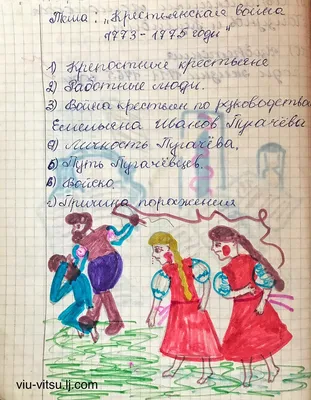 Тема: „Крестьянская война
1773-1775 годы"
1) Крепостные крестьяне
2) Работные люди.
3) Война крестьян по руководства
Емельяна Иванов Пугачёва
4) Личность Пугачёва.
5) Путь Пугачёвцев.
6) Войско.
7) Причина поражения
viu-vitsu.lj.com